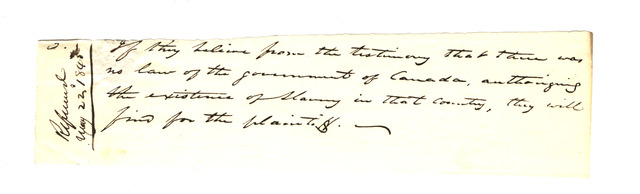 3.
Refused
May 22, 184
If they believe from the testimony that there was
no law of the government of Canada, authorizing
the existence of Slavery in that country, they will
find for the plaintiff.